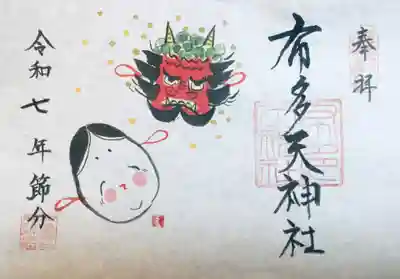 奉拝
有多天神社
令和七年節分